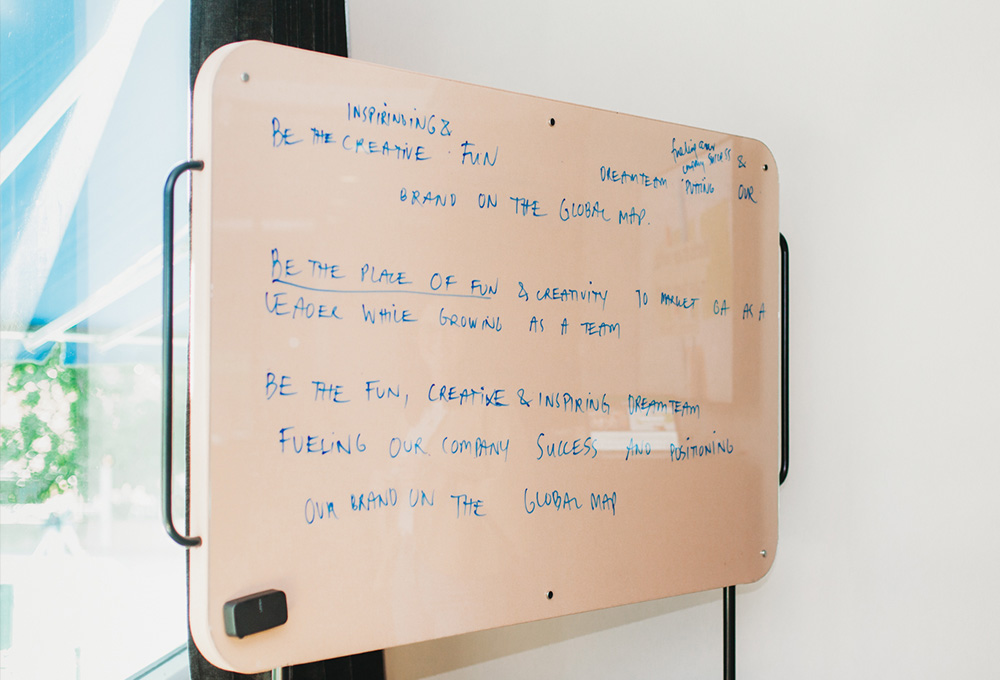 INSPIRINDING &
BE THE CREATIVE FUN
fueling our
company success &
DREAMTEAM PUTTING OUR
BRAND ON THE GLOBAL MAP.
BE THE PLACE OF FUN & CREATIVITY TO MARKET GA AS A
LEADER WHILE GROWING AS A TEAM
BE THE FUN, CREATIVE & INSPIRING DREAMTEAM
FUELING OUR COMPANY SUCCESS AND POSITIONING
OUR BRAND ON THE GLOBAL MAP